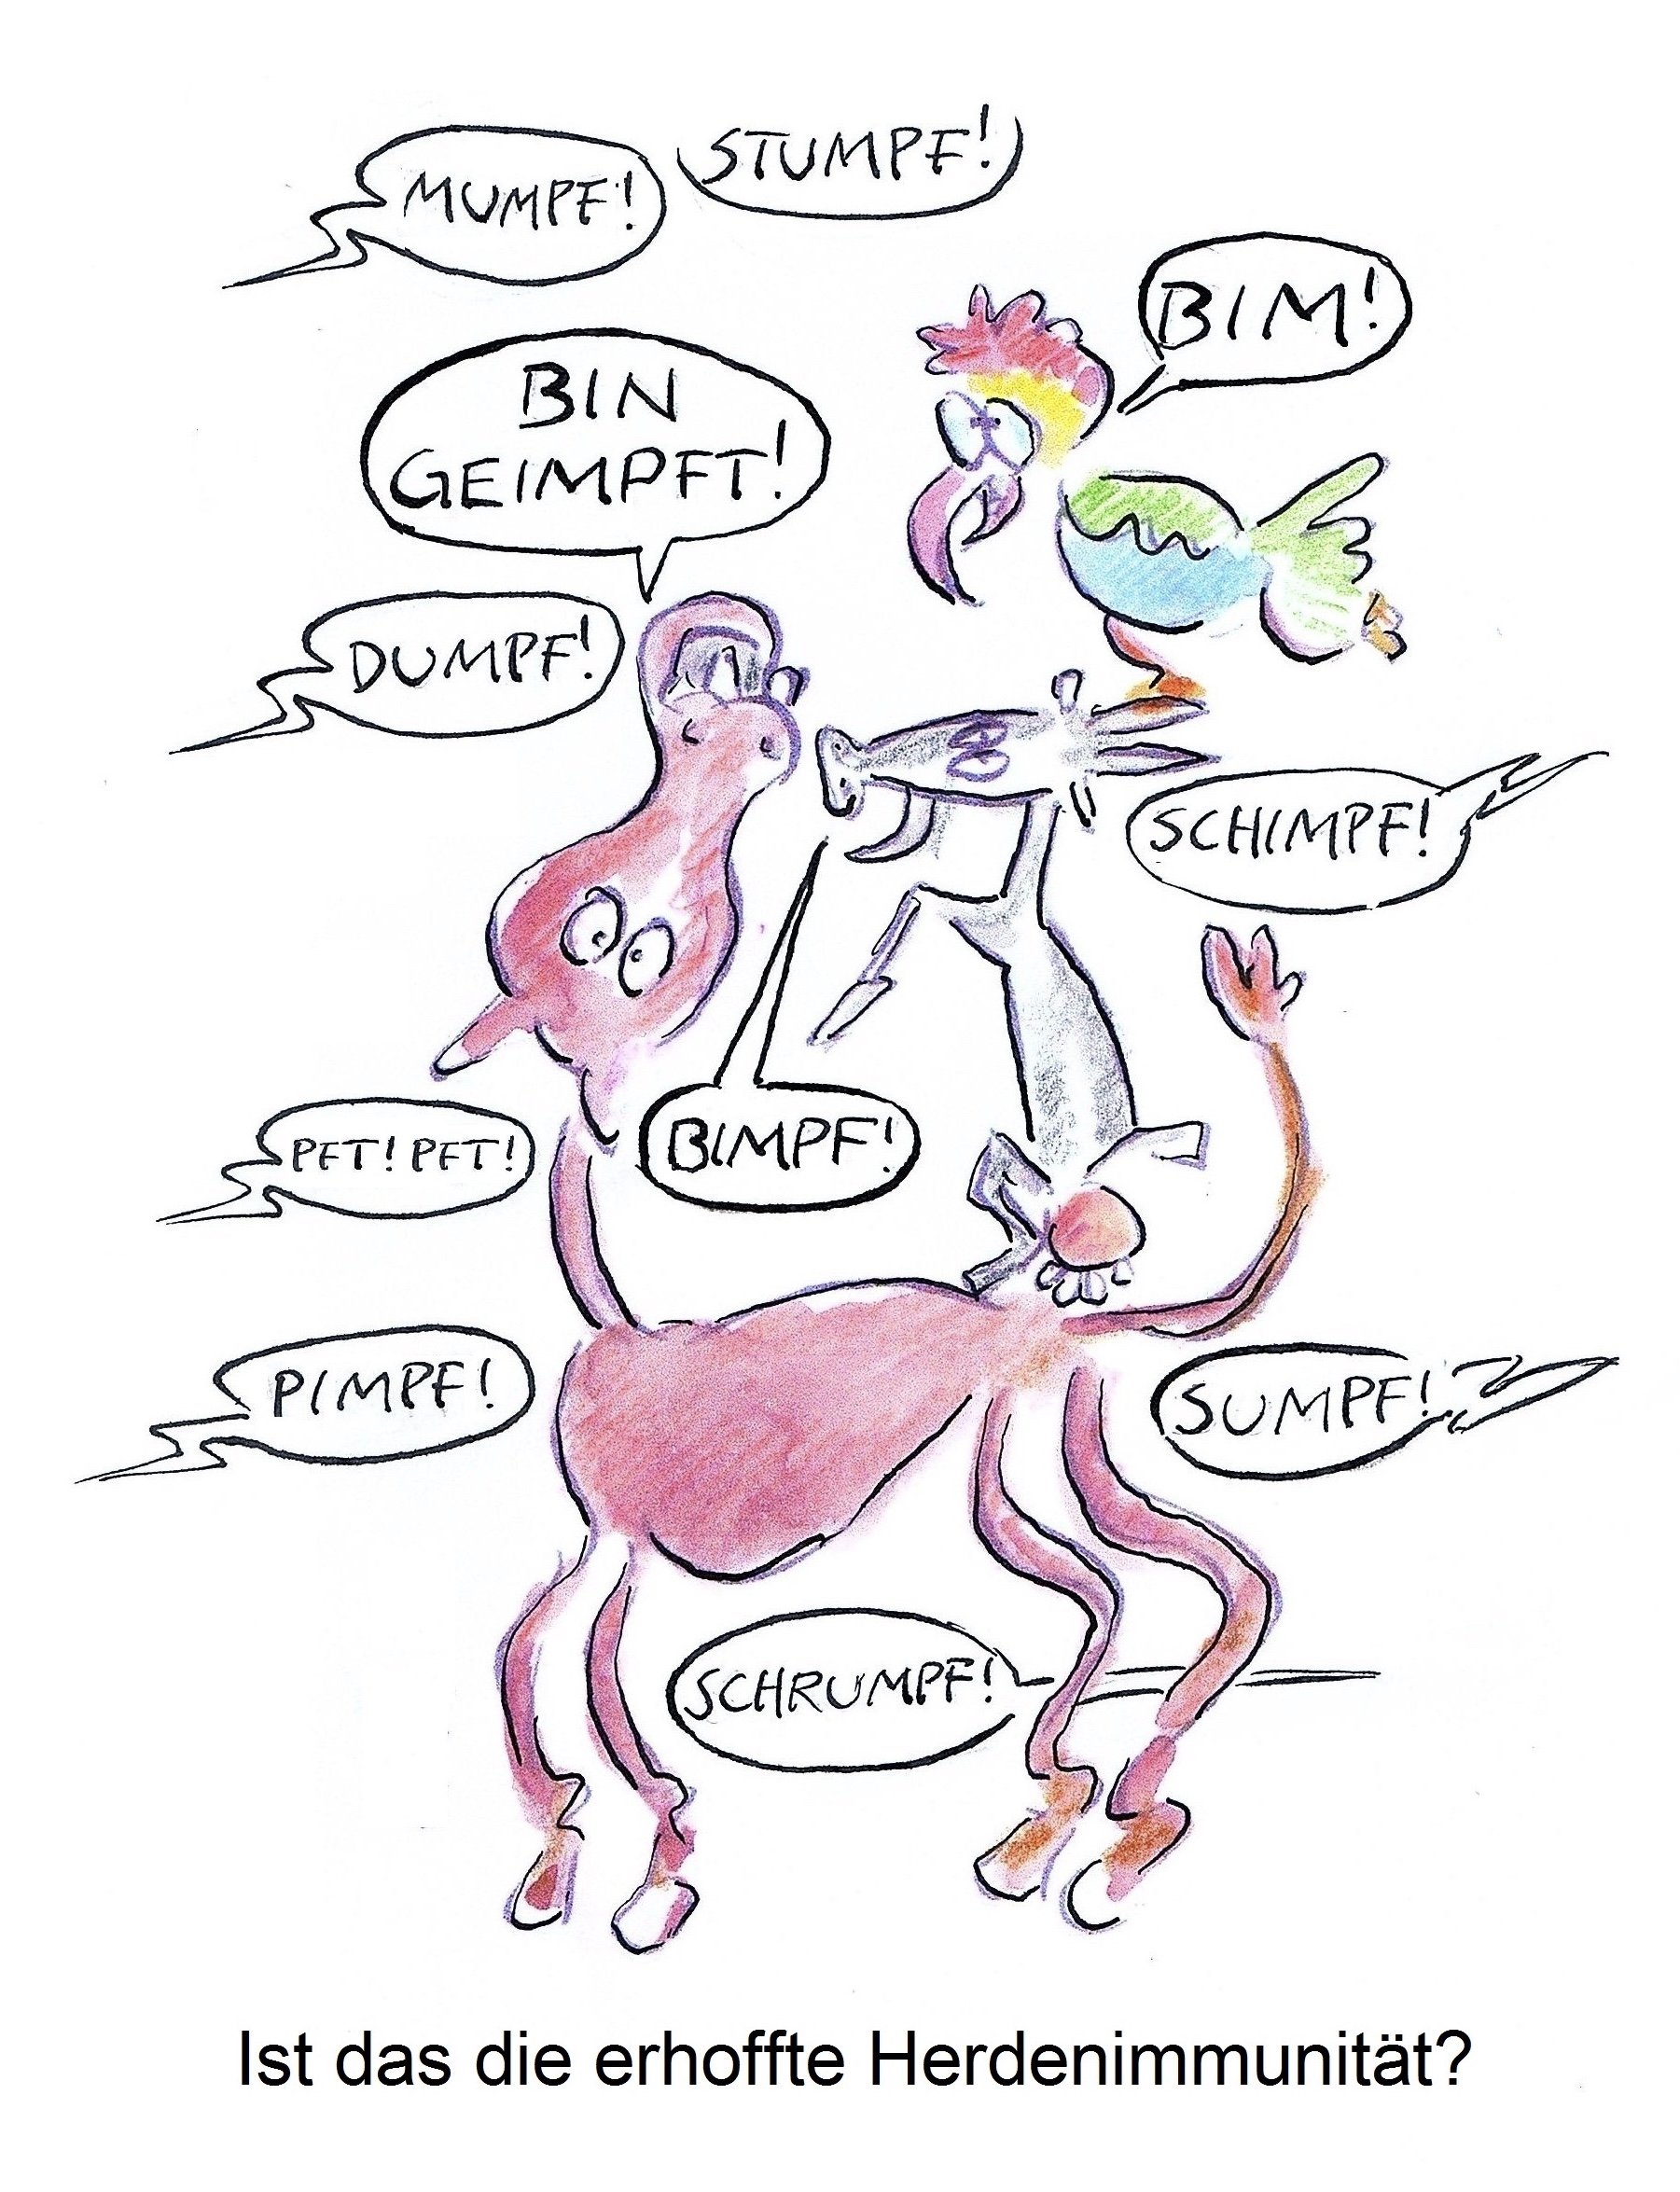 MUMPF!
STUMPF!
BIM!
BIN
GEIMPFT!
DUMPF!
SCHIMPF!
PFT! PFT!
BIMPF!
PIMPF!
SUMPF!
SCHRUMPF!
Ist das die erhoffte Herdenimmunität?